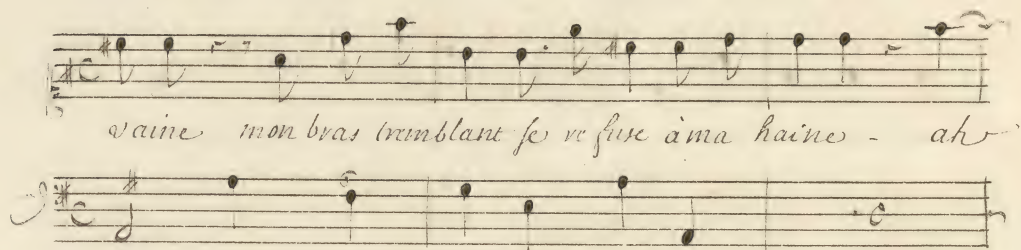 vaine mon bras tremblant se refuse à ma haine - ah